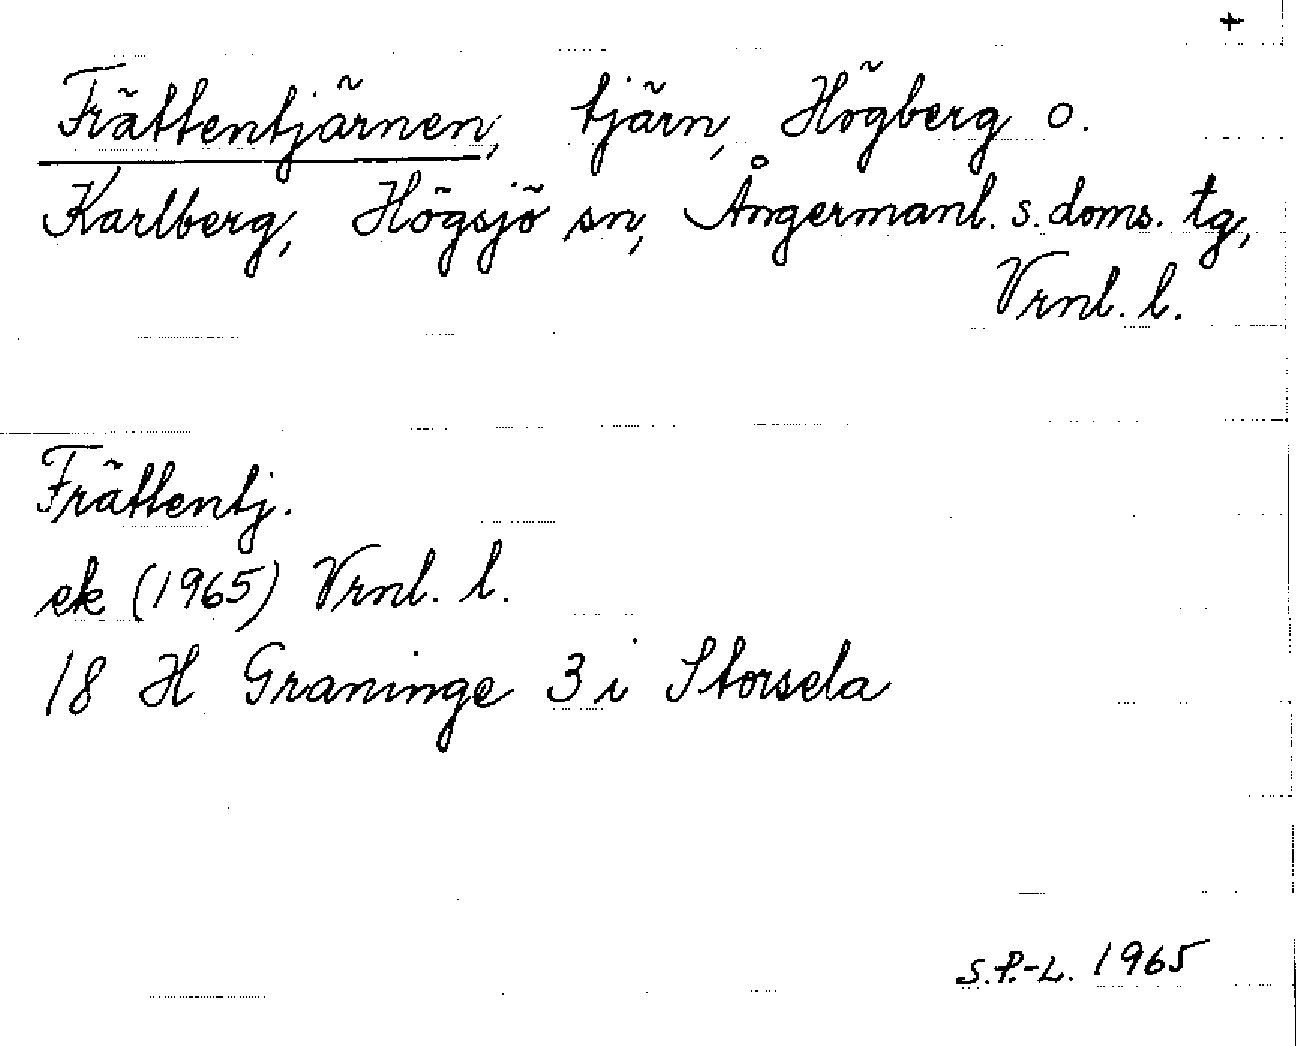 +
Frättentjärnen, tjärn, Högberg o.
Karlberg, Högsjö sn, Ångermanl. s. doms. tg,
Vrnl. l.
Frättentj.
ek (1965) Vrnl. l.
18 H Graninge 3 i Storsela
S.P.-L. 1965